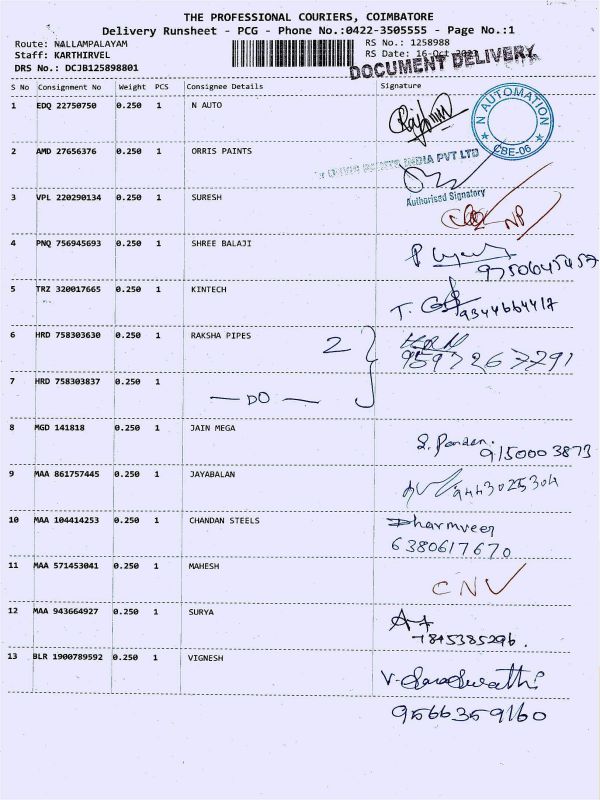 THE PROFESSIONAL COURIERS, COIMBATORE
Delivery Runsheet - PCG - Phone No.:0422-3505555 - Page No.:1
Route: NALLAMPALAYAM
RS No.: 1258988
Staff: KARTHIRVEL
RS Date: 16-Oct
DRS No.: DCJB125898801
DOCUMENT DELIVERY
S No Consignment No Weight PCS Consignee Details Signature
1 EDQ 22750750 0.250 1 N AUTO
N AUTOMATION
CBE-06
2 AMD 27656376 0.250 1 ORRIS PAINTS
INDIA PVT LTD
Authorised Signatory
3 VPL 220290134 0.250 1 SURESH
NP
4 PNQ 756945693 0.250 1 SHREE BALAJI
9750645457
5 TRZ 320017665 0.250 1 KINTECH
T.
9344664417
6 HRD 758303630 0.250 1 RAKSHA PIPES 2
9597267791
7 HRD 758303837 0.250 1
— DO —
8 MGD 141818 0.250 1 JAIN MEGA
9150003873
9 MAA 861757445 0.250 1 JAYABALAN
9443025304
10 MAA 104414253 0.250 1 CHANDAN STEELS Dharmveer
6380617670
11 MAA 571453041 0.250 1 MAHESH
CNV
12 MAA 943664927 0.250 1 SURYA
7845385296.
13 BLR 1900789592 0.250 1 VIGNESH
V. Saraswathi
9566359160